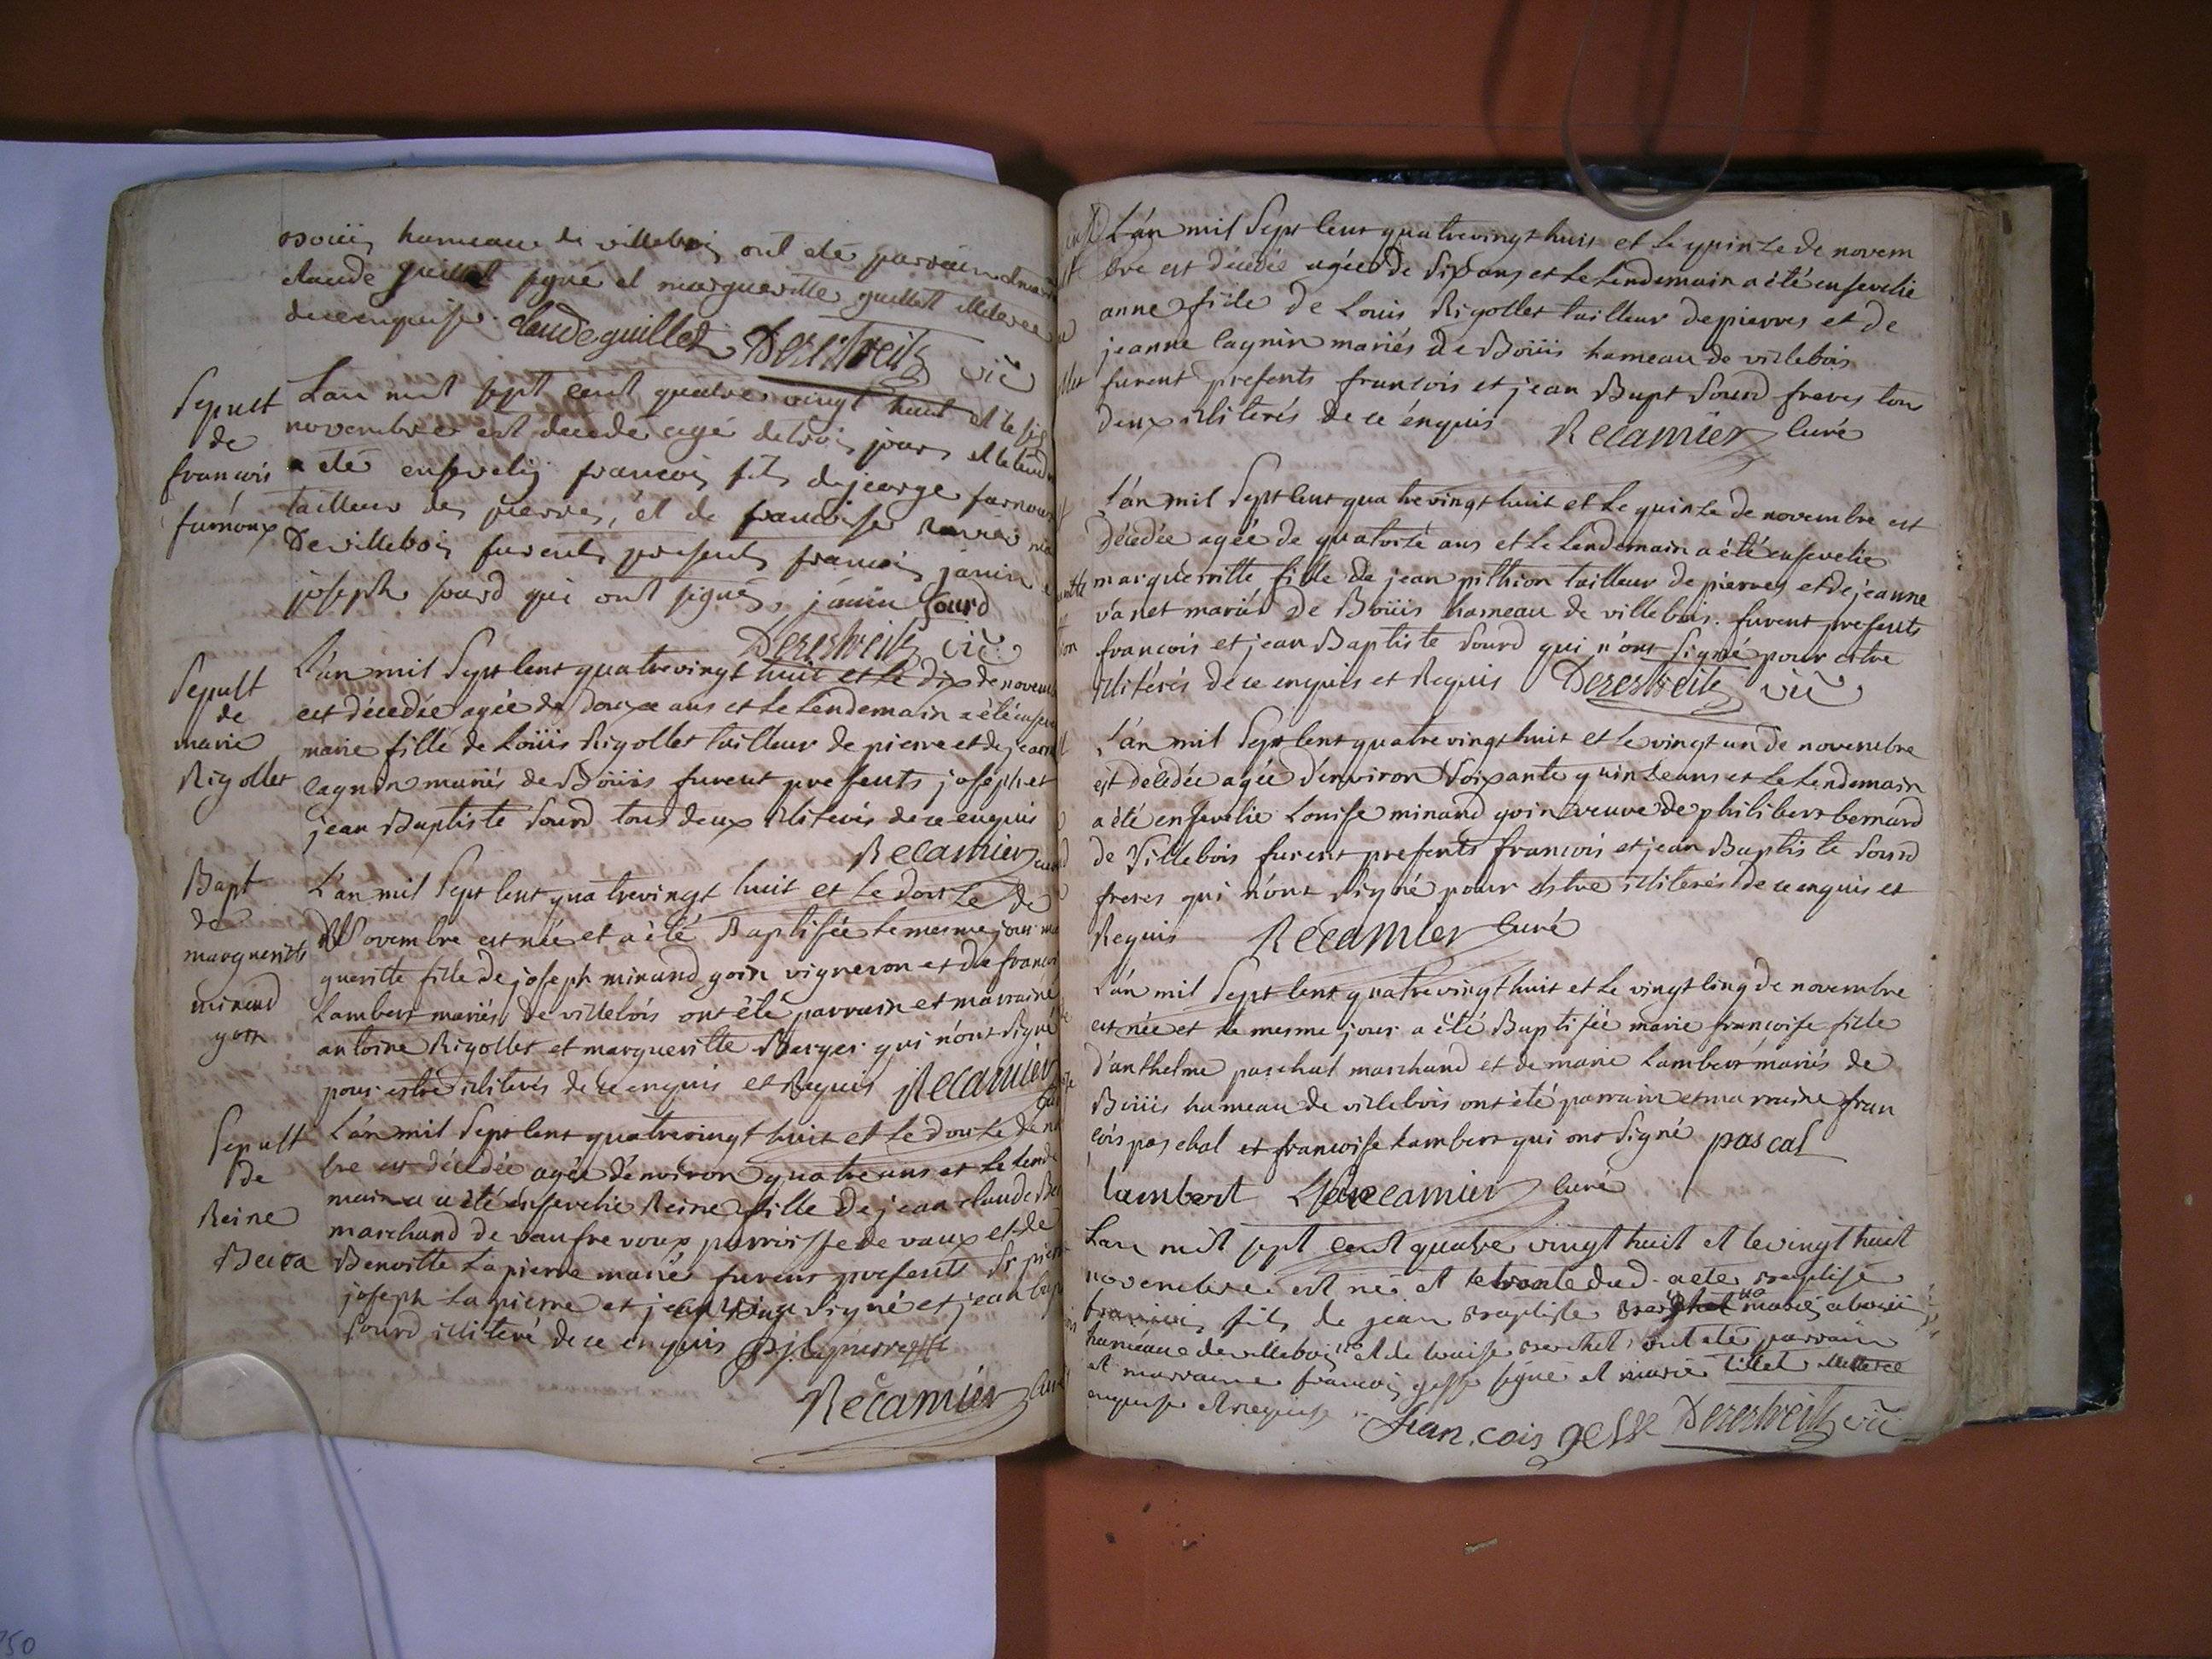 Boüis hameau de villebois ont été parrain et mar
claude guillet signé et margueritte guillet illeteree
de ce enquise. claude guillet Derestreitz vic
Sepult
de
francois
furnoux
Lan mil sept cent quatre vingt huit et le six
novembre est décédé agé de trois jours et le lend
a été ensevelis francois fils de jeorge furnoux
tailleur des pierres, et de francoise
De villebois furents presents francois janin e
joseph sourd qui ont signés. janin Sourd
Derestreitz vic
Sepult
de
marie
Rigollet
L'an mil Sept Cent quatrevingt huit et le dix de novem
est décédée agée de douze ans et Le Lendemain a été ensev
marie fille de Loüis Rigollet tailleur de pierre et de jeann
Cagnin mariés de Boüis furent presents joseph et
jean Baptiste Sourd tous deux illiterés de ce enquis
Récamier curé
Bapt
de
marguerite
minand
goin
L'an mil Sept Cent quatrevingt huit et Le douze de
Novembre est née et a été Baptisée Le mesme jour mar
gueritte fille de joseph minand goin vigneron et de francoi
Lambert mariés de villebois ont été parrain et marraine
antoine Rigollet et margueritte Berger qui n'ont Signé
pour estre illiterés de ce enquis et Requis Récamier
curé
Sepult
de
Reine
L'an mil Sept Cent quatrevingt huit et Le douze de no
bre est décédée agée d'environ quatre ans et Le Lende
main a été ensevelie Reine fille de jean claude Be
marchand de vaufrevoux parroisse de vaux et de
Benoitte Lapierre mariés furent presents Sr pierre
joseph Lapierre et jean Signé et jean bapt
Sourd illiteré de ce enquis pj Lapierre
Récamier curé
L'an mil Sept Cent quatrevingt huit et Le quinze de novem
bre est décédée agée de Six ans et Le Lendemain a été ensevelie
anne fille de Louis Rigollet tailleur de pierres et de
jeanne Cagnin mariés de Boüis hameau de villebois
furent presents francois et jean Bapt Sourd freres tous
deux illiterés de ce énquis Récamier Curé
L'an mil Sept Cent quatrevingt huit et Le quinze de novembre est
Décedée agée de quatorze ans et Le Lendemain a été ensevelie
marguerritte fille de jean pithion tailleur de pierres et de jeanne
vanet mariés De Boüis hameau de villebois. furent presents
francois et jean Baptiste Sourd qui n'ont Signé pour estre
illitérés de ce enquis et Requis Derestreitz vic
L'an mil Sept Cent quatre vingt huit et Le vingt un de novembre
est decédée agée d'environ Soixante quinze ans et Le Lendemain
a été ensevelie Louise minand goin veuve de philibert bernard
de Villebois furent presents francois et jean Baptiste Sourd
freres qui n'ont Signé pour éstre illiterés de ce enquis et
Requis Récamier Curé
L'an mil Sept Cent quatrevingt huit et Le vingt Cinq de novembre
est née et Le mesme jour a été Baptisée marie francoise fille
d'anthelme paschal marchand et de marie Lambert mariés de
Boüis hameau de villebois ont été parrain et marraine fran
cois paschal et francoise Lambert qui ont Signé pascal
lambert Récamier Curé
Lan mil sept cent quatre vingt huit et le vingt huit
novembre est né et le trente dud. a été Baptisé
francois fils de jean Baptiste mariés a boüis
hameau de villebois et de louise ont été parrain
et marraine francois gesse signé et marie tillet illeteree
enquise et requise .. fran.cois gesse Derestreitz vic